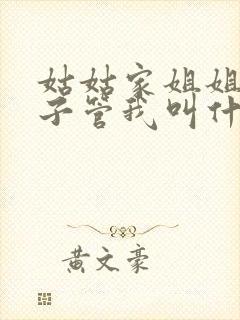 姑姑家姐姐
子管我叫什
黄文豪